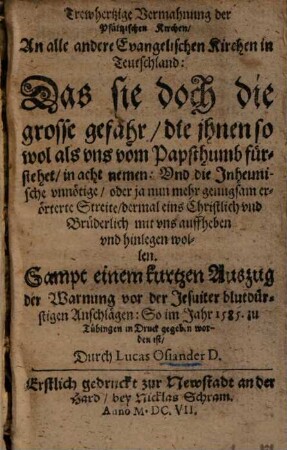 Trewhertzige Vermahnung der
Pfältzischen Kirchen/
An alle andere Evangelischen Kirchen in
Teutschland:
Das sie doch die
grosse gefahr/die jhnen so
wol als vns vom Papsthumb für-
stehet/in acht nemen: Vnd die Inheimi-
sche vnnötige/ oder ja nun mehr genugsam er-
örterte Streite/dermal eins Christlich vnd
Brüderlich mit vns auffheben
vnd hinlegen wol-
len.
Sampt einem kurtzen Auszug
der Warnung vor der Jesuiter blutdür-
stigen Anschlägen: So im Jahr 1585. zu
Tübingen in Druck gegeben wor-
den ist/
Durch Lucas Osiander D.
Erstlich gedruckt zur Newstadt an der
Hard/ bey Nicklas Schram.
Anno M.DC.VII.